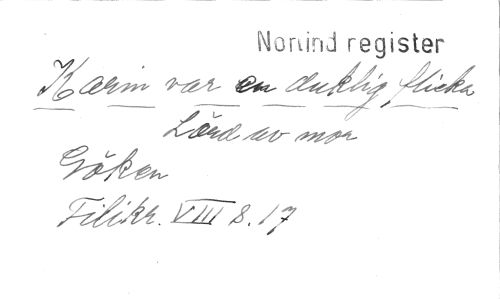 Norlind register
Karin var en duktig flicka
Lärd av mor
Göken
Filikr. VIII S. 17